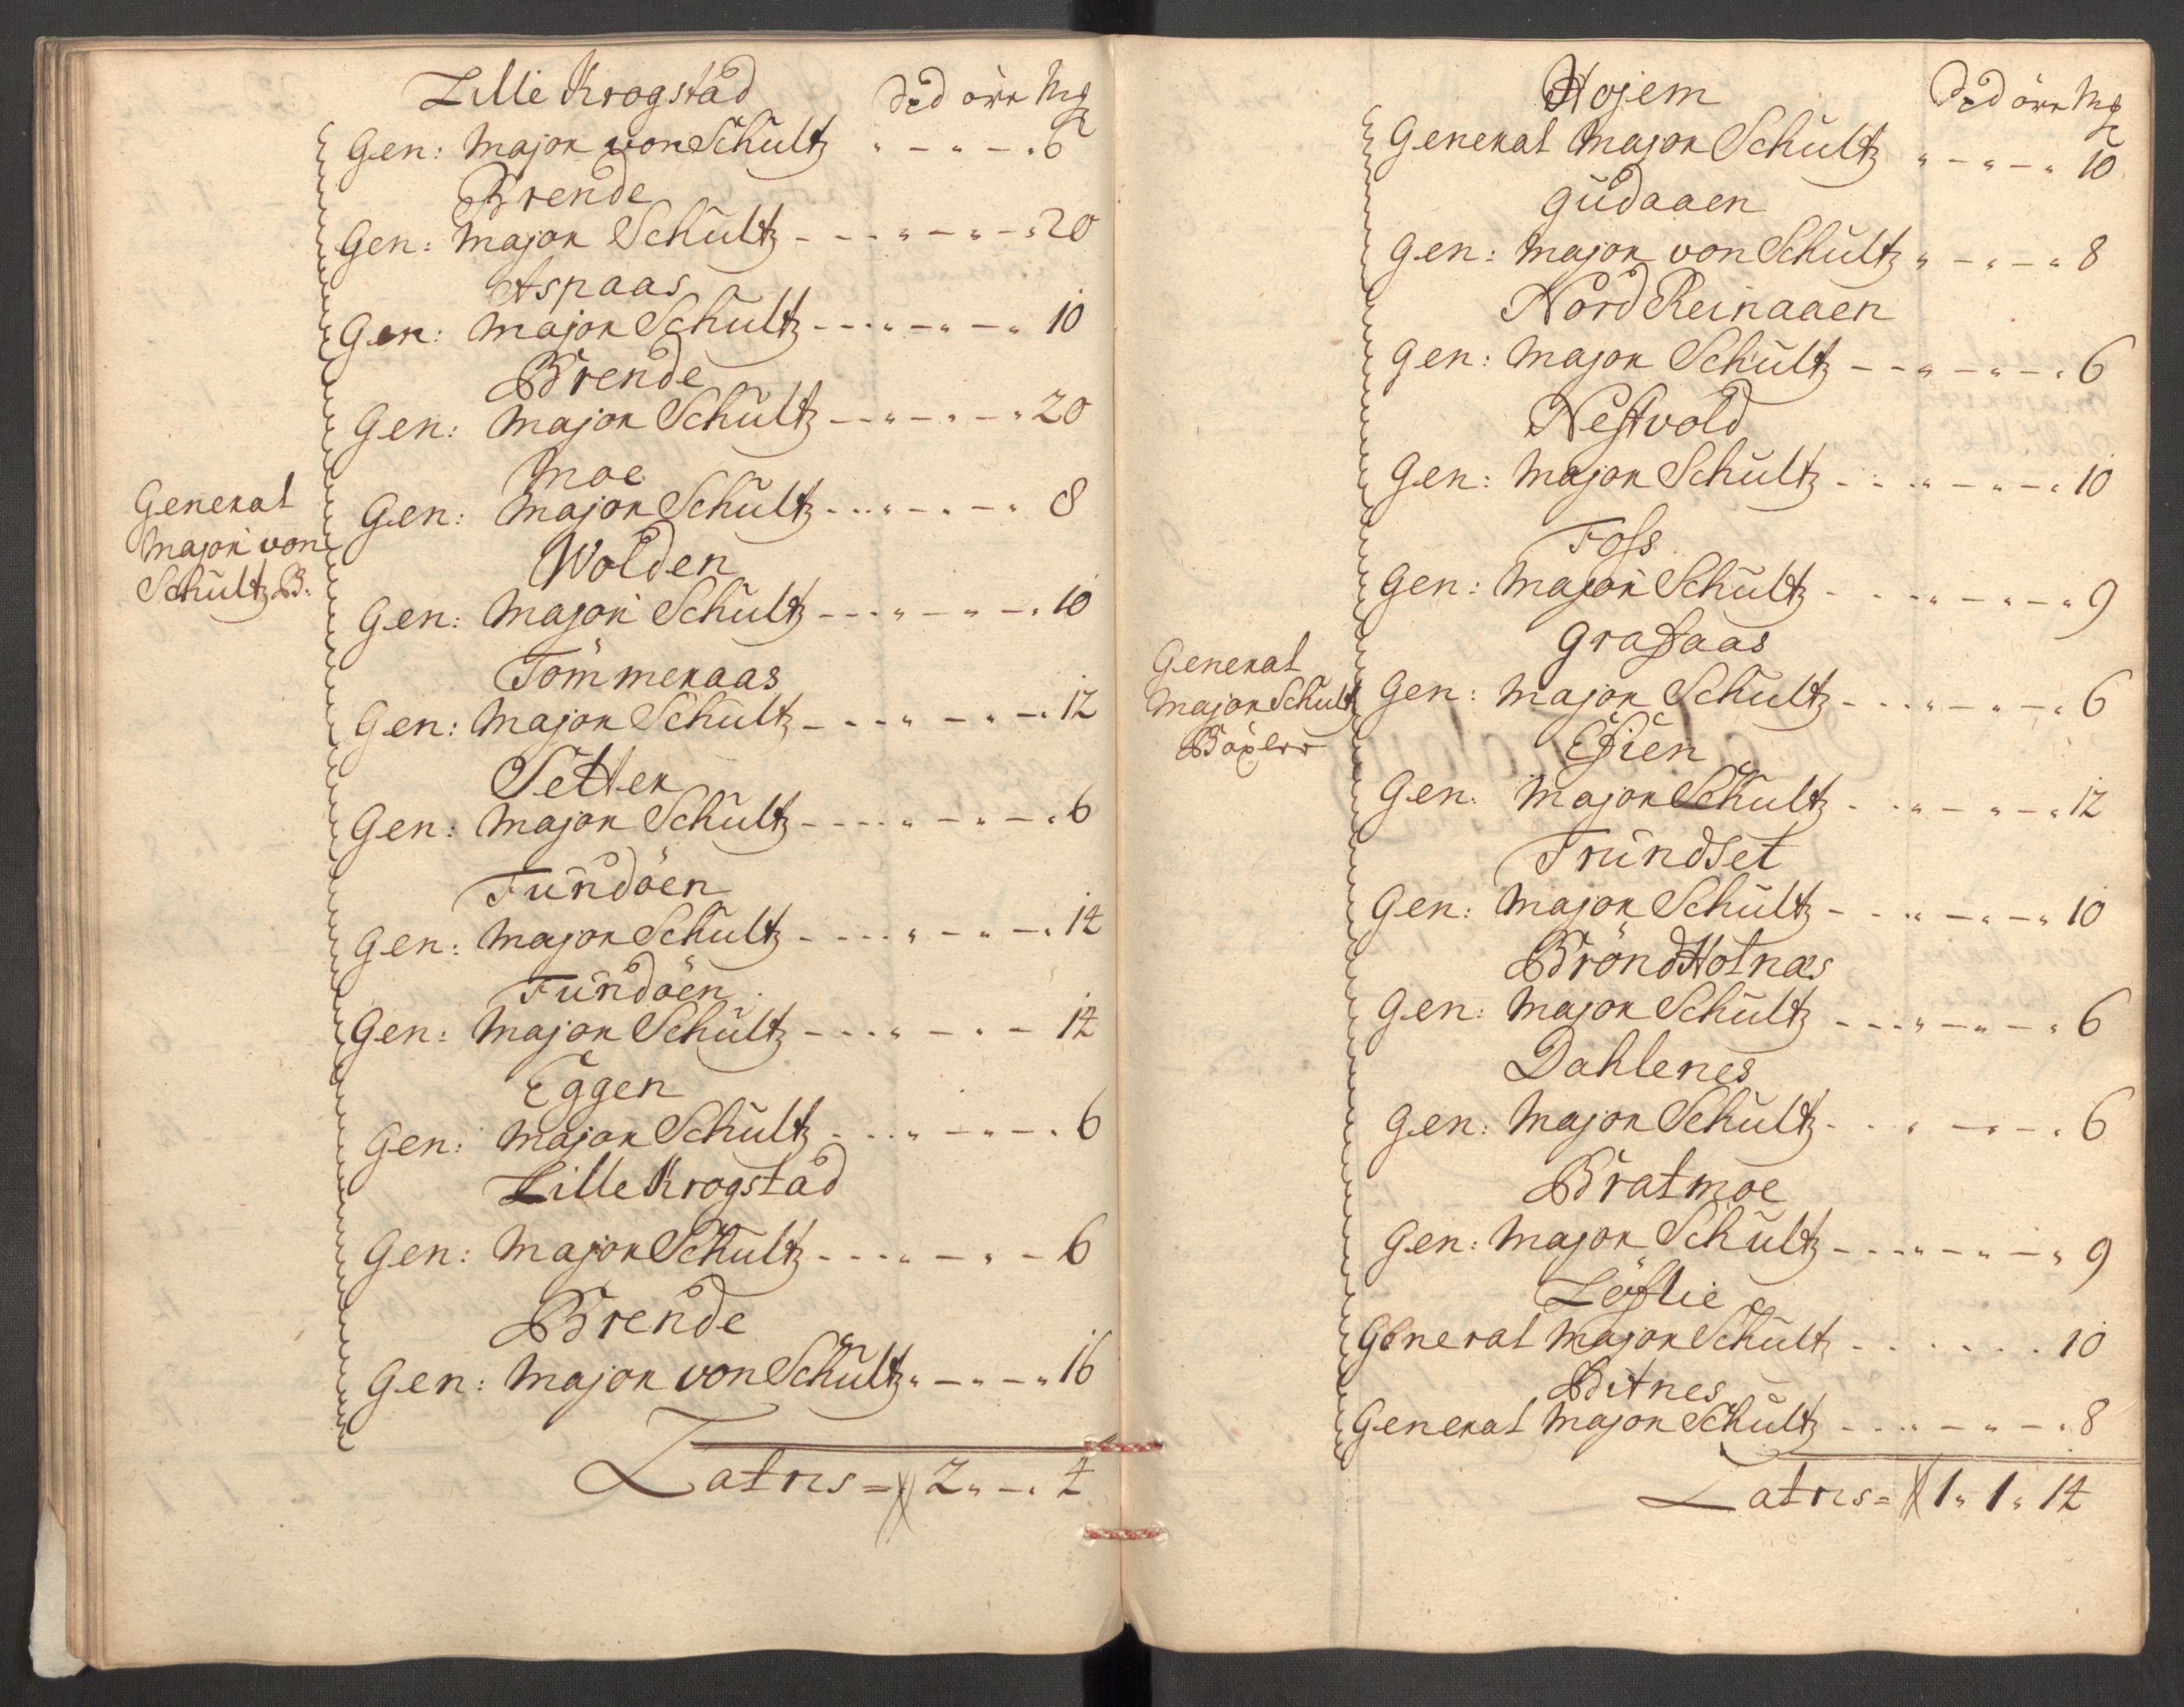 Lille Krogstad
Spd öre Mg
Gen: Major von Schultz „ - „ - „ 6
Brende
Gen: Major Schultz - - - „ - „ - „ 20
Aspaas
Gen: Major Schultz - - - „ - „ - „ 10
Brende
Gen: Major Schultz - - „ - „ - „ 20
Moe
Gen: Major Schultz - - - „ - „ - „ 8
General
Major von
Schultz B:
Wolden
Gen: Major Schultz - - - „ - „ - „ 10
Tömmeraas
Gen: Major Schultz - - - „ - „ - „ 12
Setter
Gen: Major Schultz - - - - „ - „ - „ 6
Fundöen
Gen: Major Schultz - - - - „ - „ - „ 14
Fundöen
Gen: Major Schultz - - - „ - „ - 14
Eggen
Gen: Major Schultz - - - „ - „ - „ 6
Lille Krogstad
Gen: Major Schultz - - - „ - „ - 6
Brende
Gen: Major von Schultz „ - „ - „ 16
Latus = 2 „ - „ 4
Hojem
Spd öre Mg
General Major Schultz „ - „ - „ 10
Gudaaen
Gen: Major von Schultz „ - „ - „ 8
Nord Reinaaen
Gen: Major Schultz - - „ - „ - „ 6
Nestvold
Gen: Major Schultz - - - „ - „ - „ 10
Foss
Gen: Major Schultz - - - „ - „ - „ 9
Grassaas
General
Major Schult
Gen: Major Schultz - - - „ - „ - „ 6
Essien
Gen: Major Schultz - - „ - „ - „ 12
Trundset
Gen: Major Schultz - - - „ - „ - „ 10
BröndHolnæs
Gen: Major Schultz - - - „ - „ - „ 6
Dahlenes
Gen: Major Schultz - - - „ - „ - „ 6
Bratmoe
Gen: Major Schultz - - - „ - „ - „ 9
Löflie
General Major Schultz - - - - - - 10
Bitnes
General Major Schultz - - - „ - „ - „ 8
Latus = 1 „ 1 „ 14